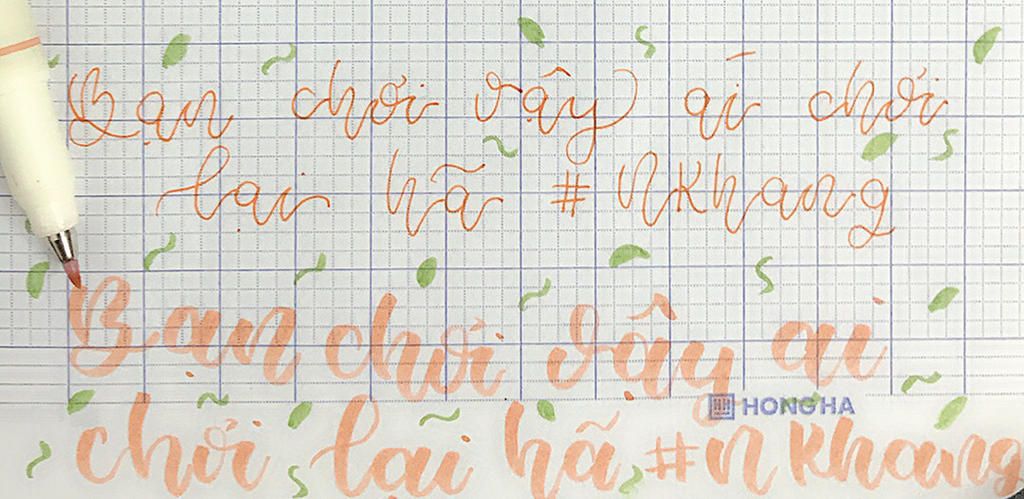 Bạn chơi vậy ai chơi
lại hã #nKhang
Bạn chơi vậy ai
HONG HA
chơi lại hã #nKhang